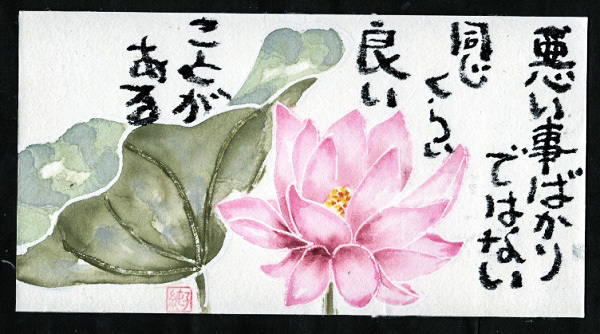 悪い事ばかり
ではない
同じ
くらい
良い
ことが
ある